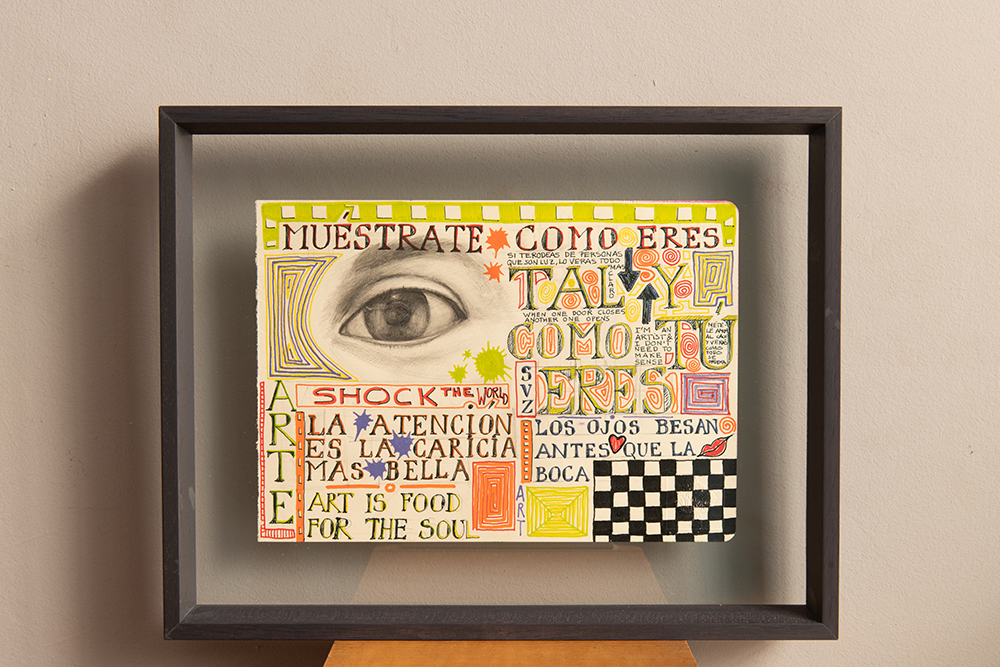 MUÉSTRATE COMO ERES
SI TE RODEAS DE PERSONAS
QUE SON LUZ, LO VERAS TODO
MAS
CLARO
TAL Y
WHEN ONE DOOR CLOSES
ANOTHER ONE OPENS
COMO TÚ
I'M AN
ARTIST &
I DON'T
NEED TO
MAKE
SENSE
ERES
SVZ
SHOCK THE WORLD
ARTE
LA ATENCIÓN
ES LA CARICÍA
MAS BELLA
ART IS FOOD
FOR THE SOUL
LOS OJOS BESAN
ANTES QUE LA
BOCA
ART